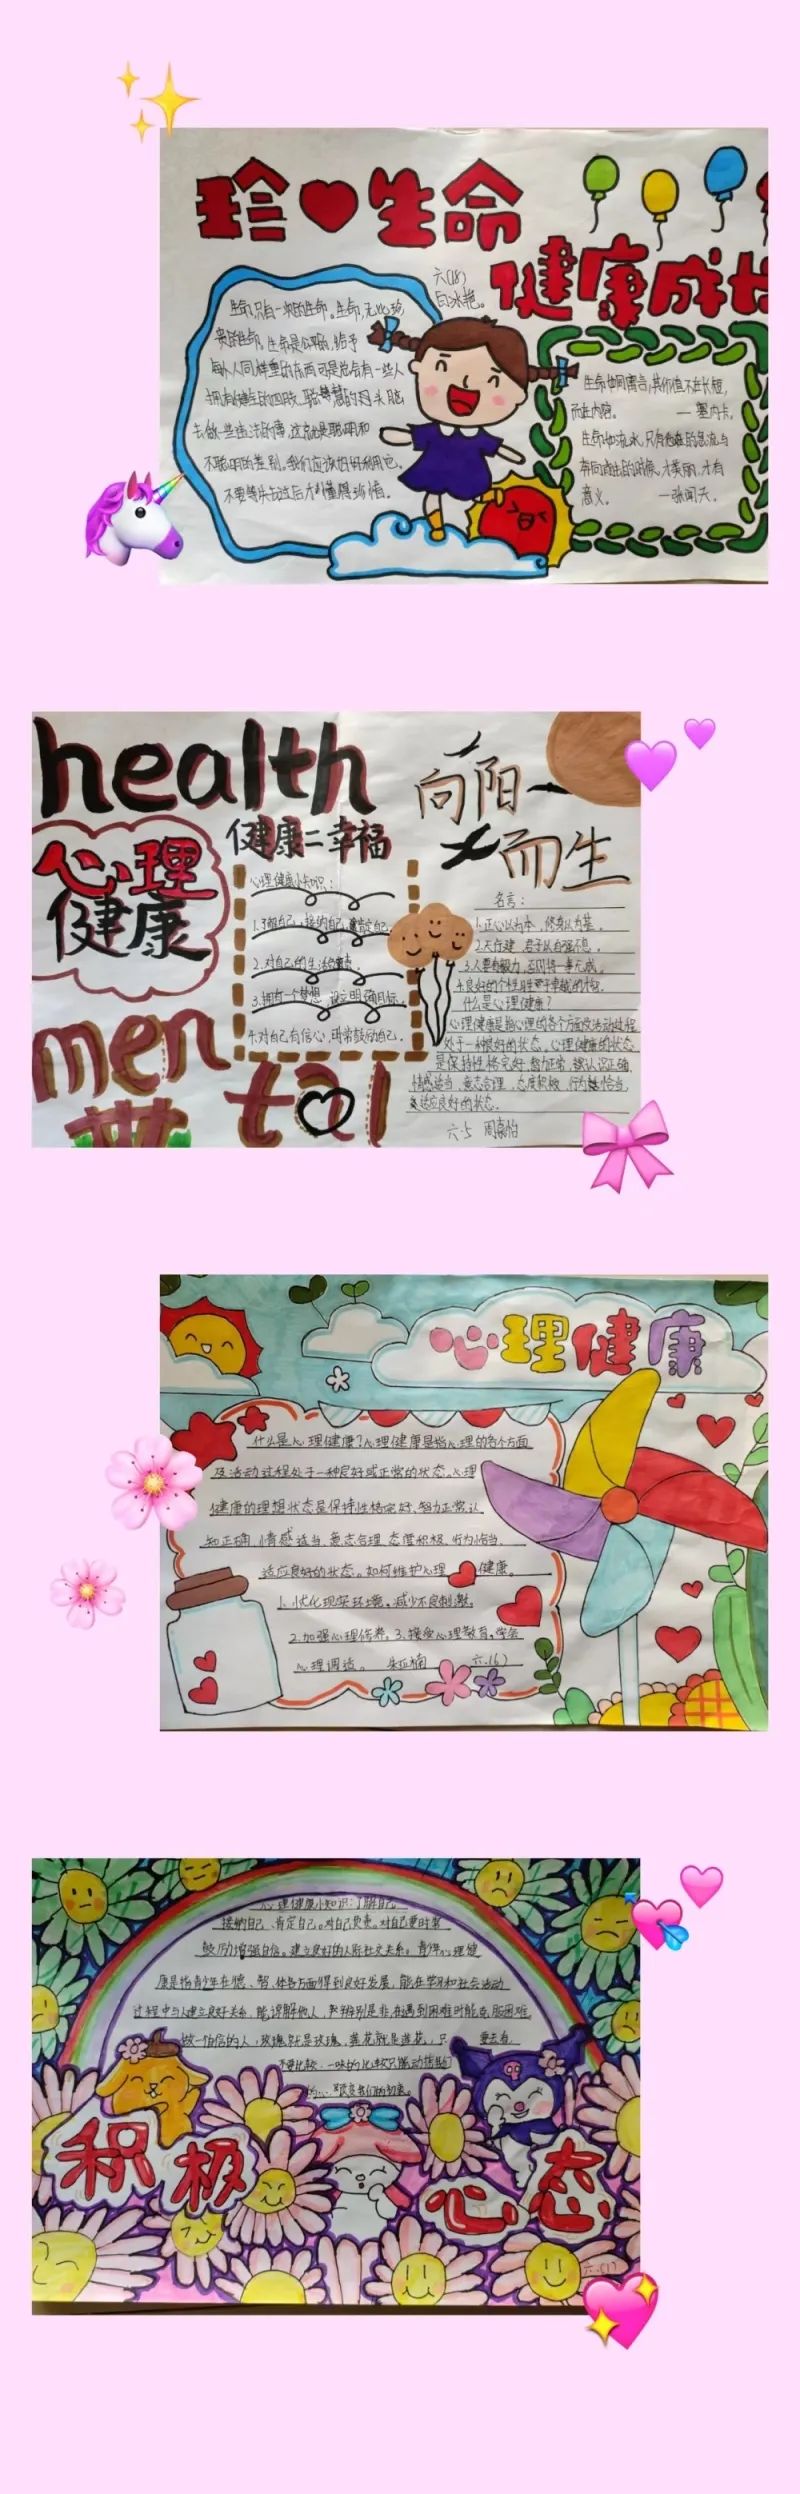 珍 生命
健康成长
六(18)
生命,只有一次的生命。生命,无比珍
贵的生命。生命是公平的,给予
每个人同样重的东西,可是总会有一些人
拥有健全的四肢、聪慧的头脑
去做一些违法的事,这就是聪明和
不聪明的差别。我们应该好好利用它。
不要等失去过后才懂得珍惜。
生命如同寓言,其价值不在长短,
而在内容。 —塞内卡。
生命如流水,只有在他的急流与
奔向前去的时候,才美丽,才有
意义。 —张闻天。
health
健康=幸福
心理
健康
men
tal
向阳
而生
心理健康小知识:
1.了解自己,接纳自己,肯定自己
2.对自己的生活负责。
3.拥有一个梦想,设立明确目标。
4.对自己有信心,时常鼓励自己。
名言:
1.正心以为本,修身以为基。
2.天行健,君子以自强不息。
3.人要有毅力,否则将一事无成。
4.良好的个性胜于卓越的才智。
什么是心理健康?
心理健康是指心理的各个方面及活动过程
处于一种良好的状态。心理健康的状态
是保持性格完好、智力正常、认识正确、
情感适当、意志合理、态度积极、行为恰当、
适应良好的状态。
六.5 周嘉怡
心理健康
什么是心理健康?心理健康是指心理的各个方面
及活动过程处于一种良好或正常的状态。心理
健康的理想状态是保持性格完好、智力正常、认
知正确、情感适当、意志合理、态度积极、行为恰当、
适应良好的状态。如何维护心理 健康。
1.优化现实环境。减少不良刺激。
2.加强心理修养。3.接受心理教育,学会
心理调适。 六.(6)
心理健康小知识:了解自己
接纳自己、肯定自己。对自己负责。对自己要时常
鼓励增强自信。建立良好的人际社交关系。青少年心理健
康是指青少年在德、智、体各方面得到良好发展,能在学习和社会活动
过程中与人建立良好关系,能谅解他人,能辨别是非,在遇到困难时能克服困难,
做一个自信的人,玫瑰就是玫瑰,莲花就是莲花,只 要去看
不要比较,一味的比较只能动摇我们
积极
心态
六.(1)